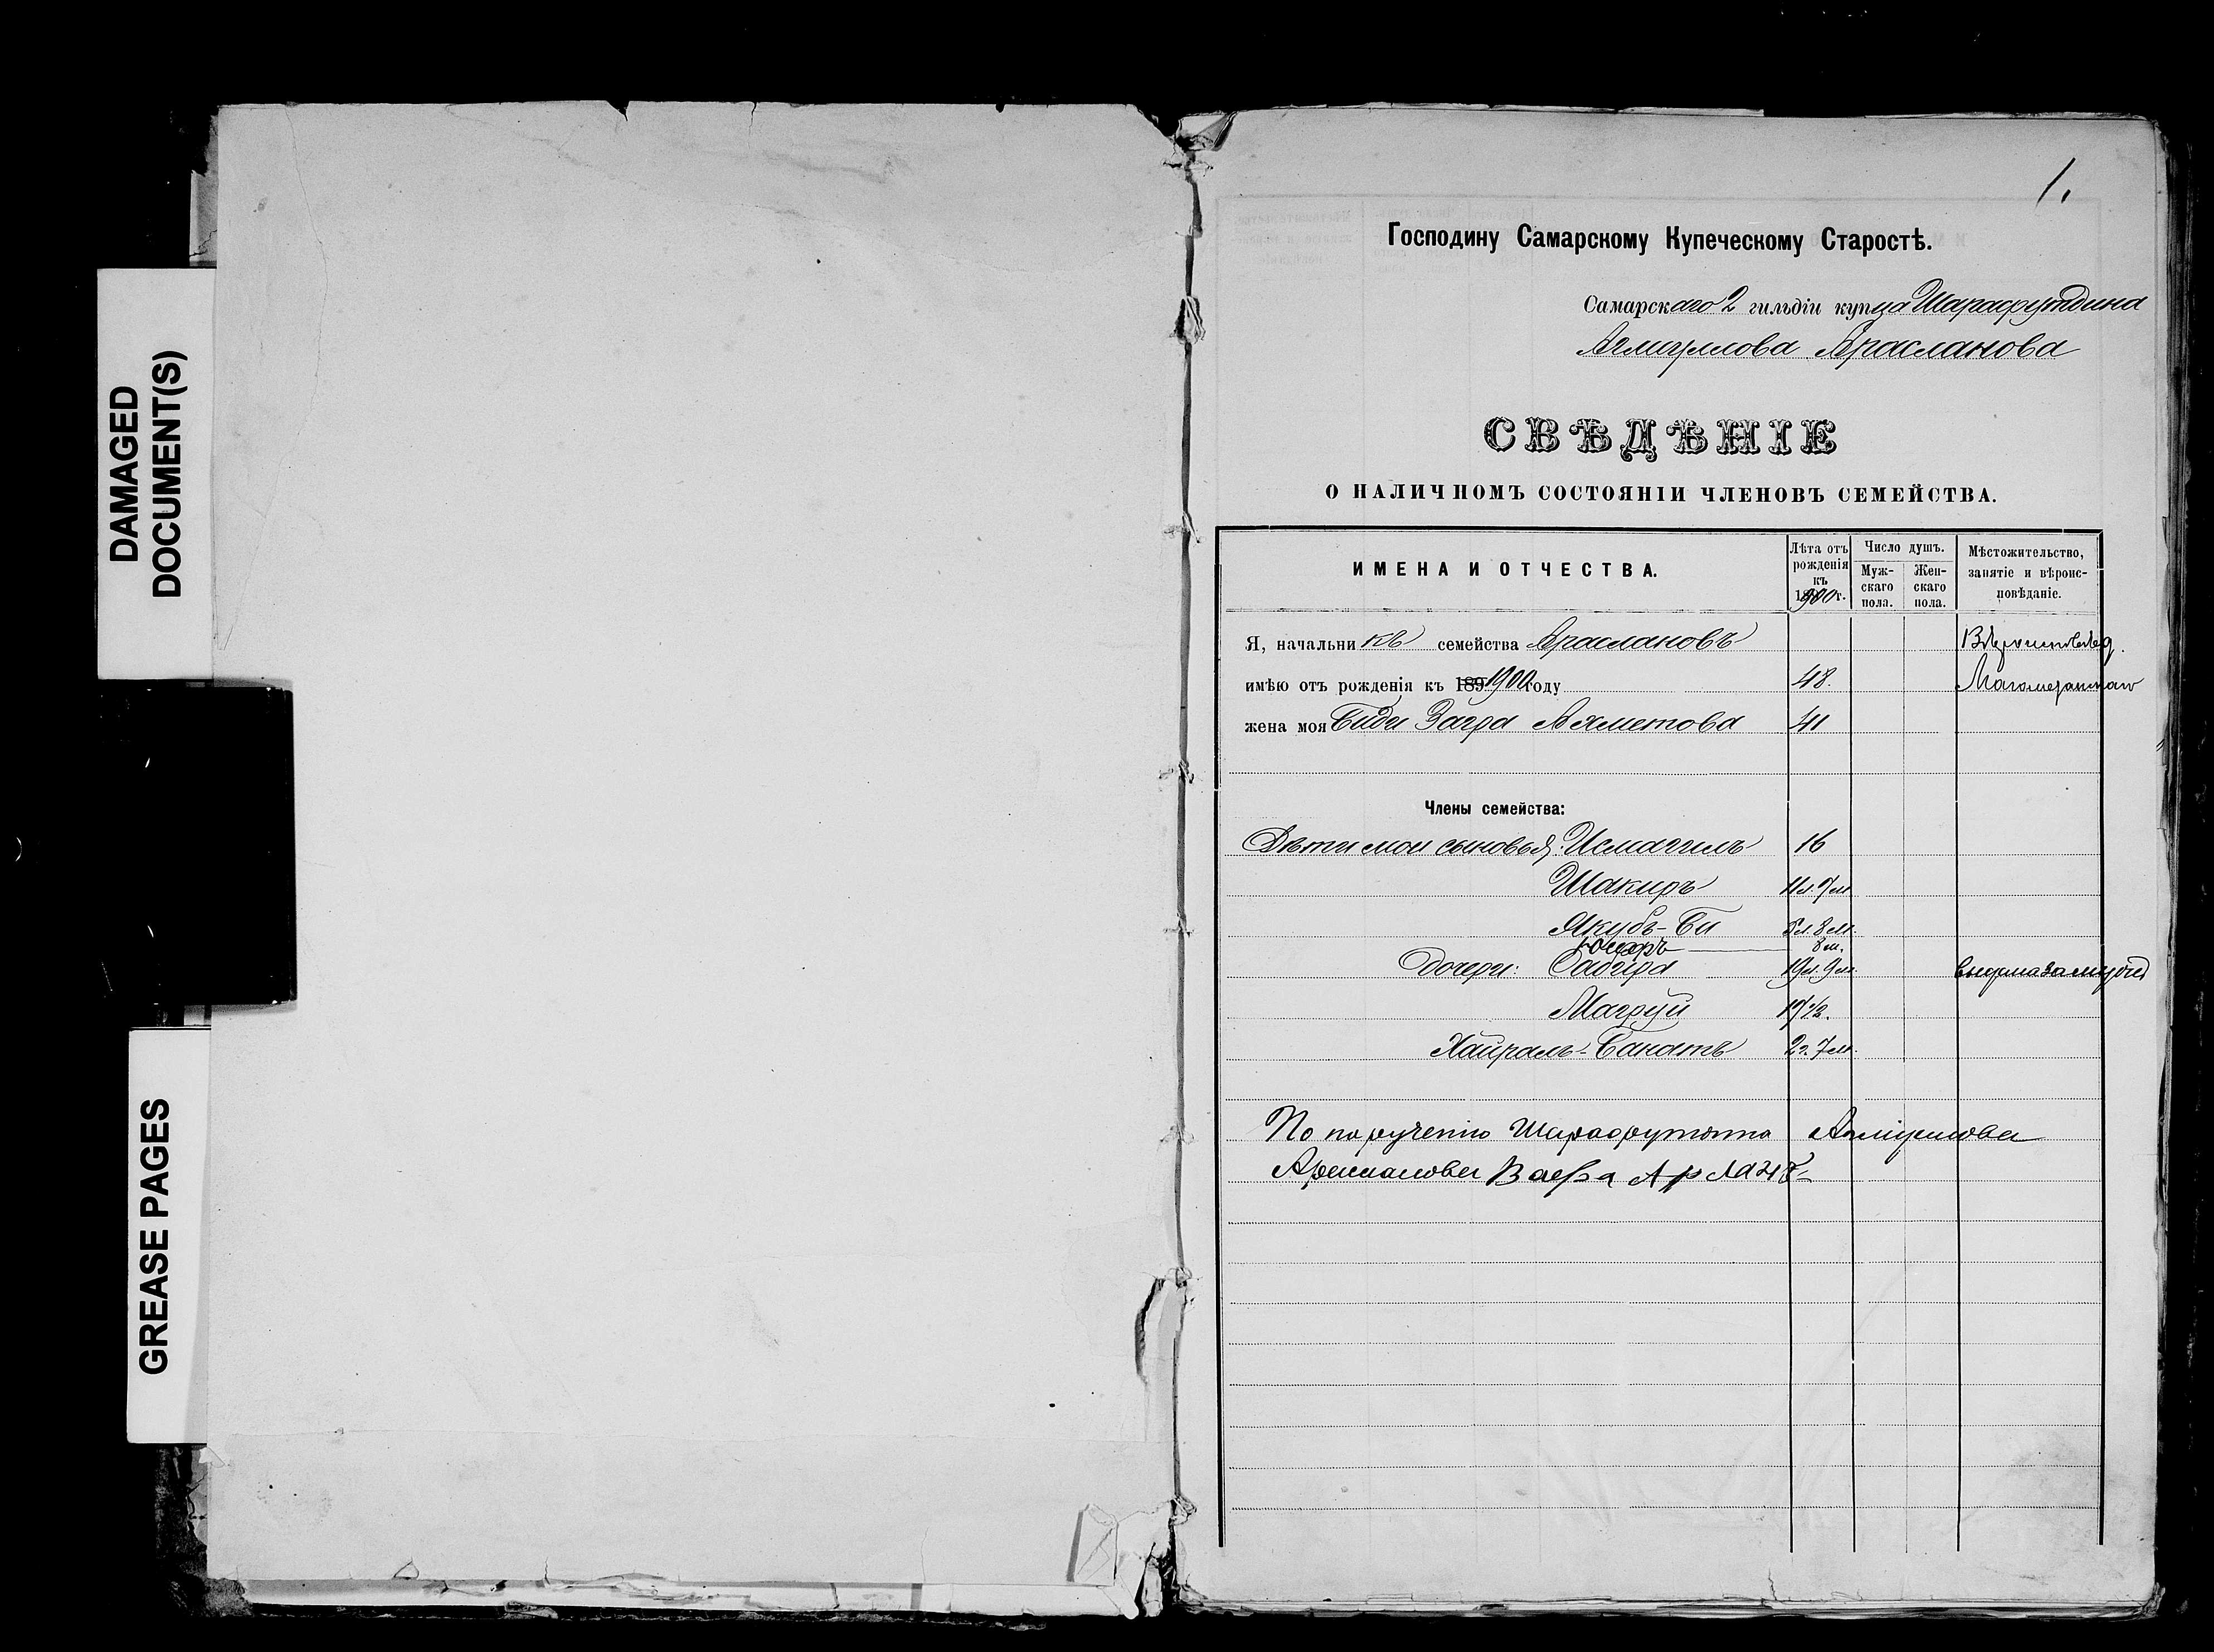 DAMAGED
DOCUMENT(S)
GREASE PAGES
1.
Господину Самарскому Купеческому Старостѣ.
Самарскаго 2 гильдіи купца Шарафутдина
Арасланова
СВѢДѢНІЕ
О НАЛИЧНОМЪ СОСТОЯНІИ ЧЛЕНОВЪ СЕМЕЙСТВА.
ИМЕНА И ОТЧЕСТВА.
Лѣта отъ рожденія къ 1900 г.
Число душъ.
Мужскаго пола.
Женскаго пола.
Мѣстожительство, занятіе и вѣроисповѣданіе.
Я, начальникъ семейства Араслановъ Вѣроисповѣд.
имѣю отъ рожденія къ 189 1900 году 48. Магометанскаго
жена моя Биби Загра Ахметова 41
Члены семейства:
Дѣти мои сыновья: Исмагилъ 16
Шакиръ 11 л. 7 м.
Якубъ-Би 5 л. 8 м.
8 м.
Дочери: Сабира 19 л. 9 м. выдана замужъ
Магруй 17 1/2.
Хайралъ-Банатъ 2 г. 7 м.
По порученію Шарафутдина
Арасланова